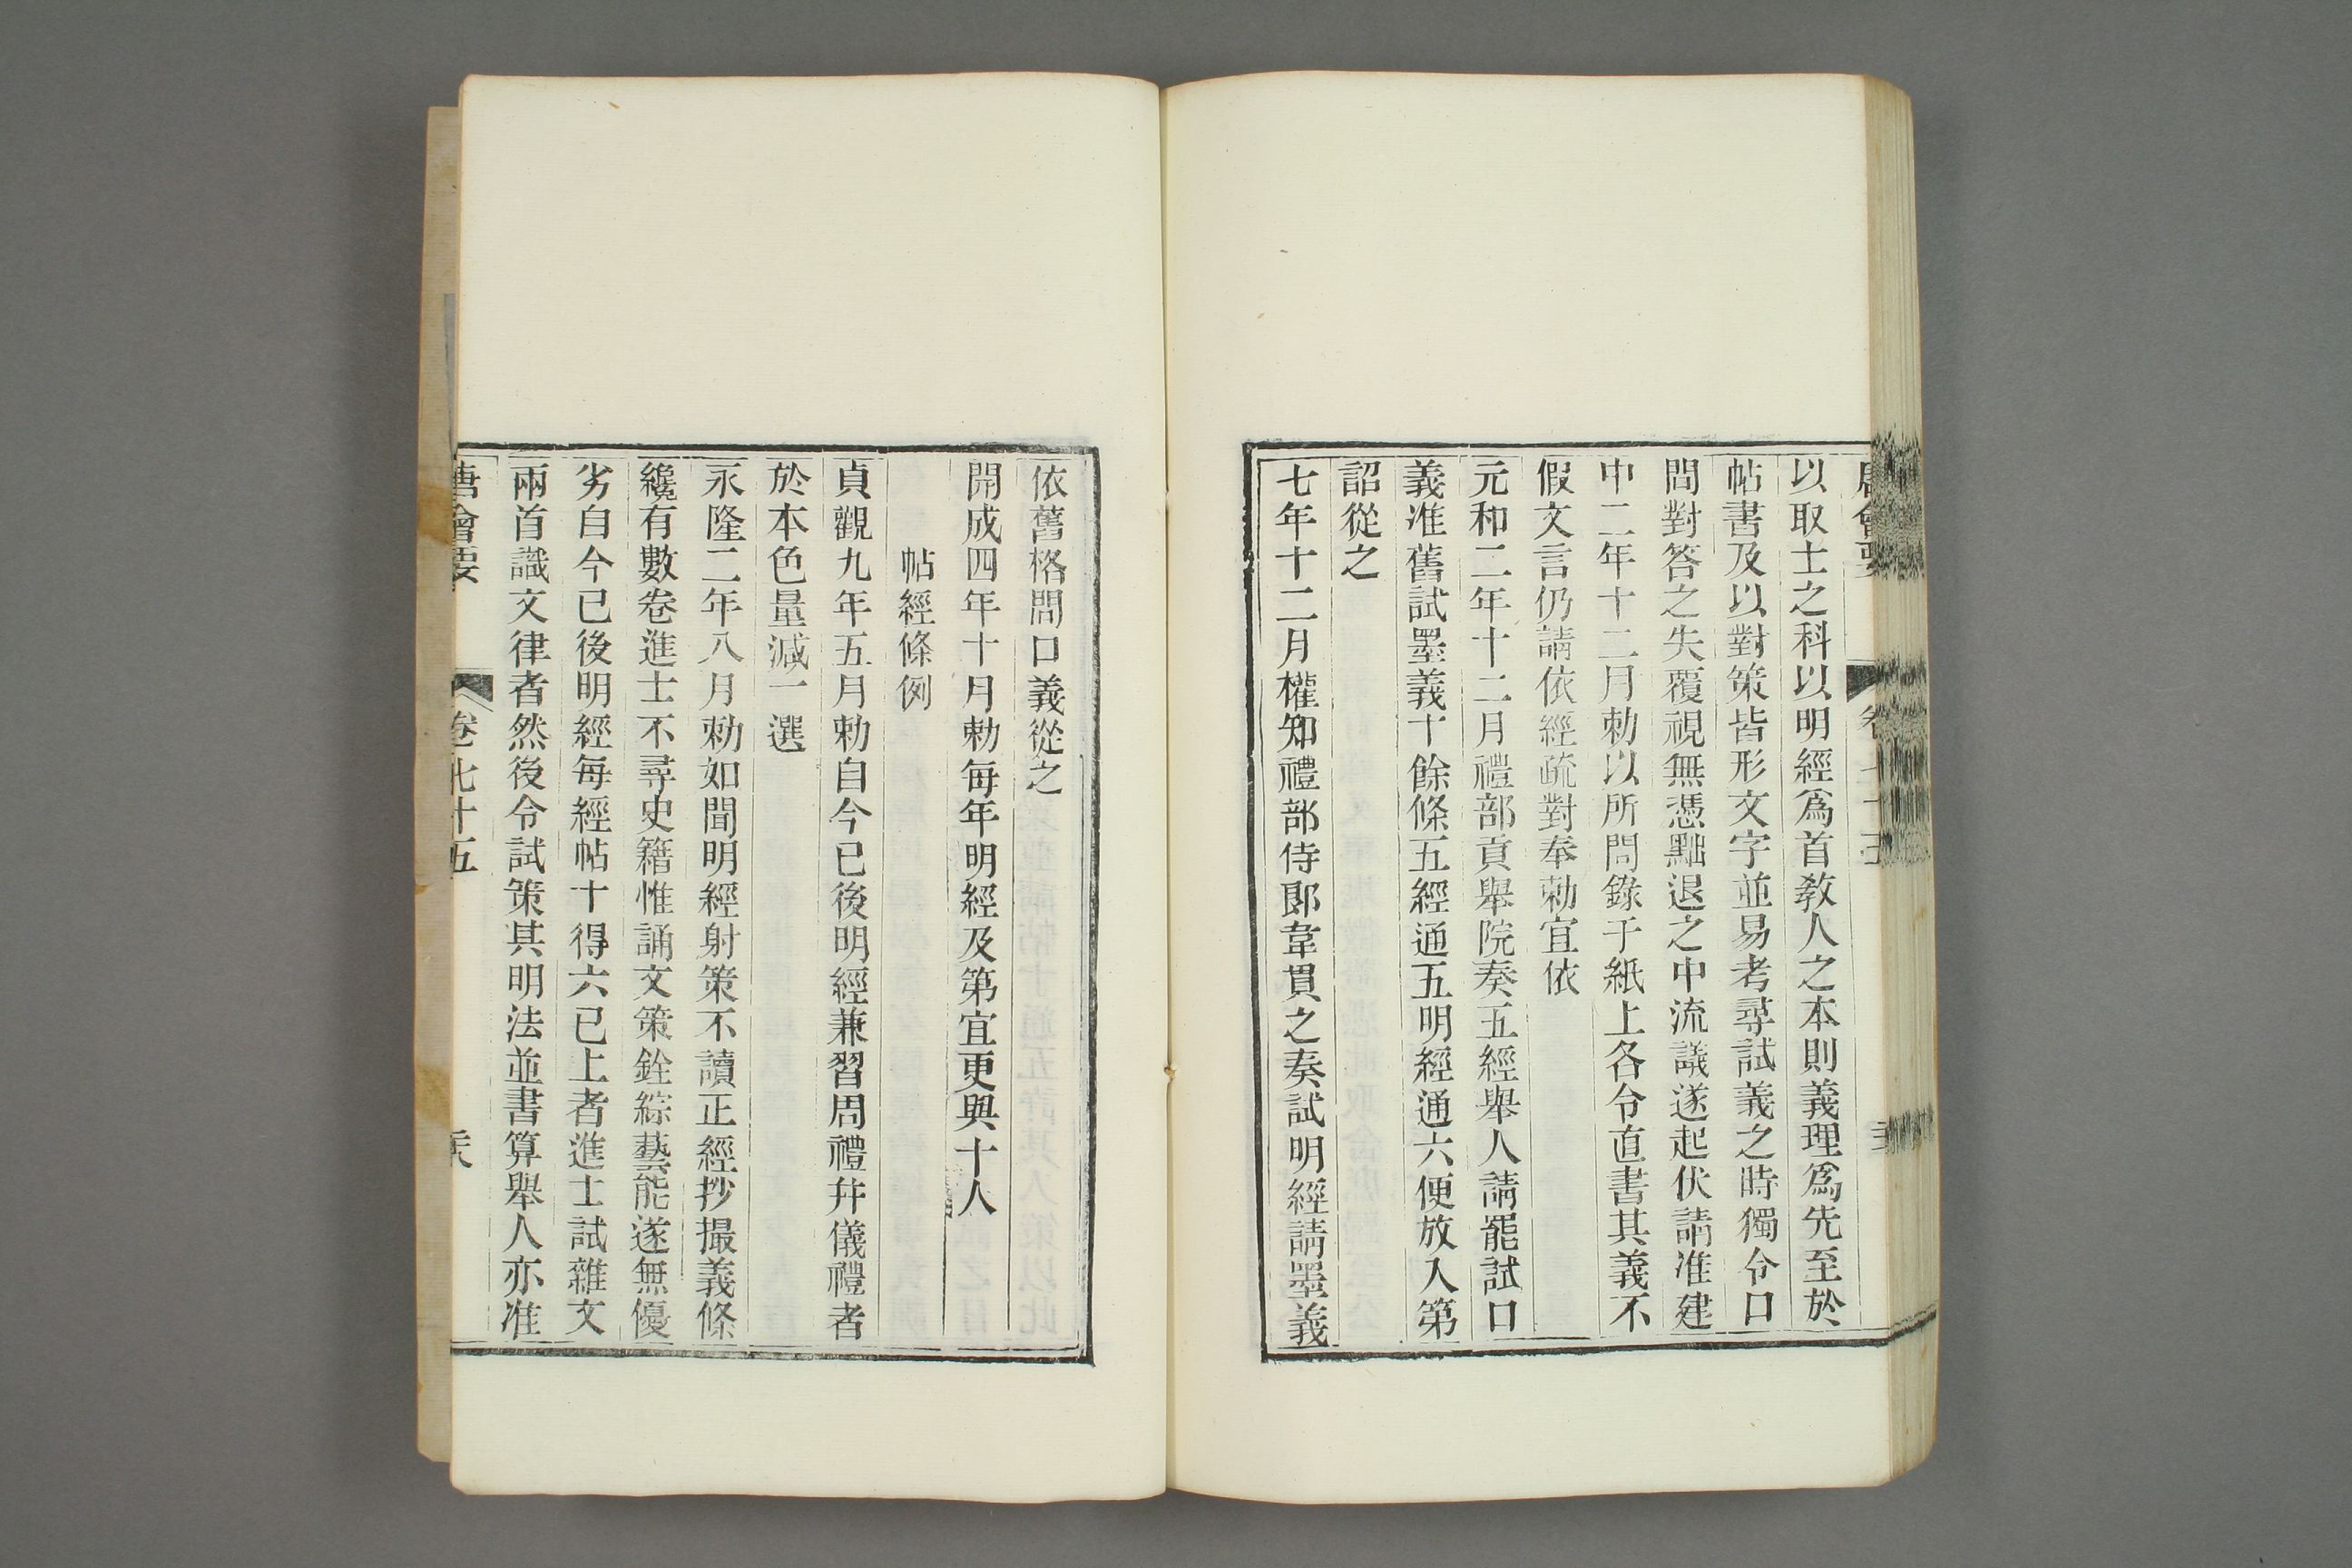 唐會要 卷七十五
以取士之科以明經爲首敎人之本則義理爲先至於
帖書及以對策皆形文字並易考尋試義之時獨令口
問對答之失覆視無憑黜退之中流議遂起伏請准建
中二年十二月勅以所問錄于紙上各令直書其義不
假文言仍請依經疏對奉勅宜依
元和二年十二月禮部貢舉院奏五經舉人請罷試口
義准舊試墨義十餘條五經通五明經通六便放入第
詔從之
七年十二月權知禮部侍郞韋貫之奏試明經請墨義
依舊格問口義從之
開成四年十月勅每年明經及第宜更與十人
帖經條例
貞觀九年五月勅自今已後明經兼習周禮幷儀禮者
於本色量減一選
永隆二年八月勅如聞明經射策不讀正經抄撮義條
纔有數卷進士不尋史籍惟誦文策銓綜藝能遂無優
劣自今已後明經每經帖十得六已上者進士試雜文
兩首識文律者然後令試策其明法並書算舉人亦准
唐會要 卷七十五